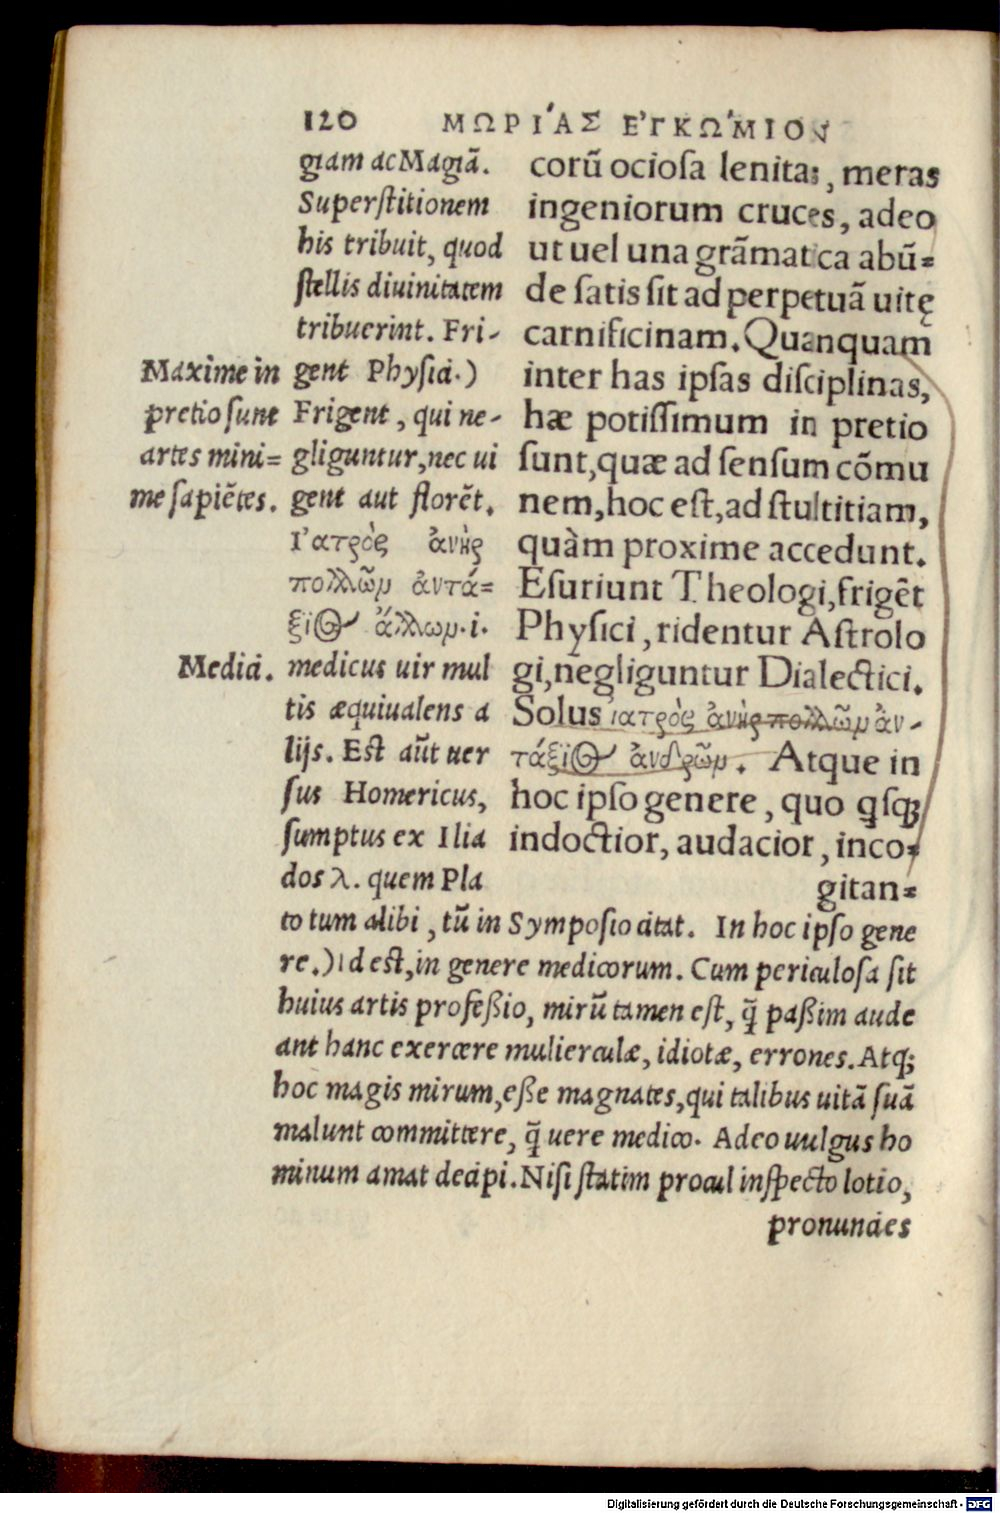 120 ΜΩΡΙ´ΑΣ ΕʼΓΚΩ´ΜΙΟΝ
corũ ociosa lenitas, meras
ingeniorum cruces, adeo
ut uel una grãmatica abũ=
de satis sit ad perpetuã uitę
carnificinam. Quanquam
inter has ipsas disciplinas,
hæ potissimum in pretio
sunt, quæ ad sensum cõmu
nem, hoc est, ad stultitiam,
quàm proxime accedunt.
Esuriunt Theologi, frigẽt
Physici, ridentur Astrolo
gi, negliguntur Dialectici.
Solus ἰατρὸς ἀνὴρ πολλῶμ ἀν-
τάξιΘ ἀνδρῶμ. Atque in
hoc ipso genere, quo ꝗsꝗ;
indoctior, audacior, inco=
gitan=
giam ac Magiã.
Superstitionem
his tribuit, quod
stellis diuinitatem
tribuerint. Fri-
gent Physici.)
Frigent, qui ne-
gliguntur, nec ui
gent aut florẽt.
Ιʼατρὸς ἀνὴρ
πολλῶμ ἀντά=
ξιΘ ἄλλωμ. i.
medicus uir mul
tis æquiualens a
lijs. Est aũt uer
sus Homericus,
sumptus ex Ilia
dos λ. quem Pla
Maxime in
pretio sunt
artes mini=
me sapiẽtes.
Medici.
to tum alibi, tũ in Symposio citat. In hoc ipso gene
re.) Id est, in genere medicorum. Cum periculosa sit
huius artis professio, mirũ tamen est, q̃ passim aude
ant hanc exercere mulierculæ, idiotæ, errones. Atq;
hoc magis mirum, esse magnates, qui talibus uitã suã
malunt committere, q̃ uere medico. Adeo uulgus ho
minum amat decipi. Nisi statim procul inspecto lotio,
pronuncies
Digitalisierung gefördert durch die Deutsche Forschungsgemeinschaft - DFG